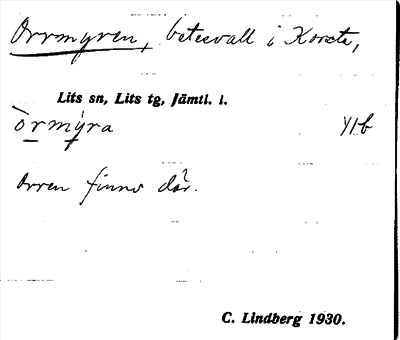 Orrmyren, betesvall i Korsta,
Lits sn, Lits tg, Jämtl. l.
òrmýra 41b
Orren finns där.
C. Lindberg 1930.